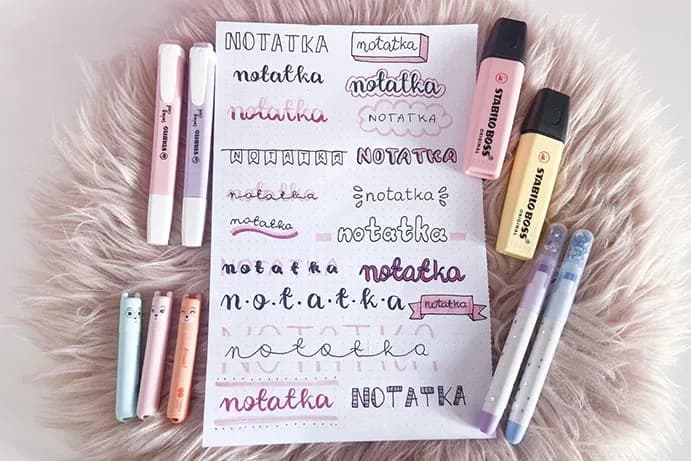 NOTATKA
notatka
notatka
notatka
notatka
NOTATKA
NOTATKA
NOTATKA
notatka
notatka
notatka
notatka
NOTATKA
notatka
notatka
n·o·t·a·t·k·a
notatka
NOTATKA
notatka
notatka
NOTATKA
STABILO swing cool
STABILO swing cool
STABILO BOSS
ORIGINAL
STABILO BOSS
ORIGINAL